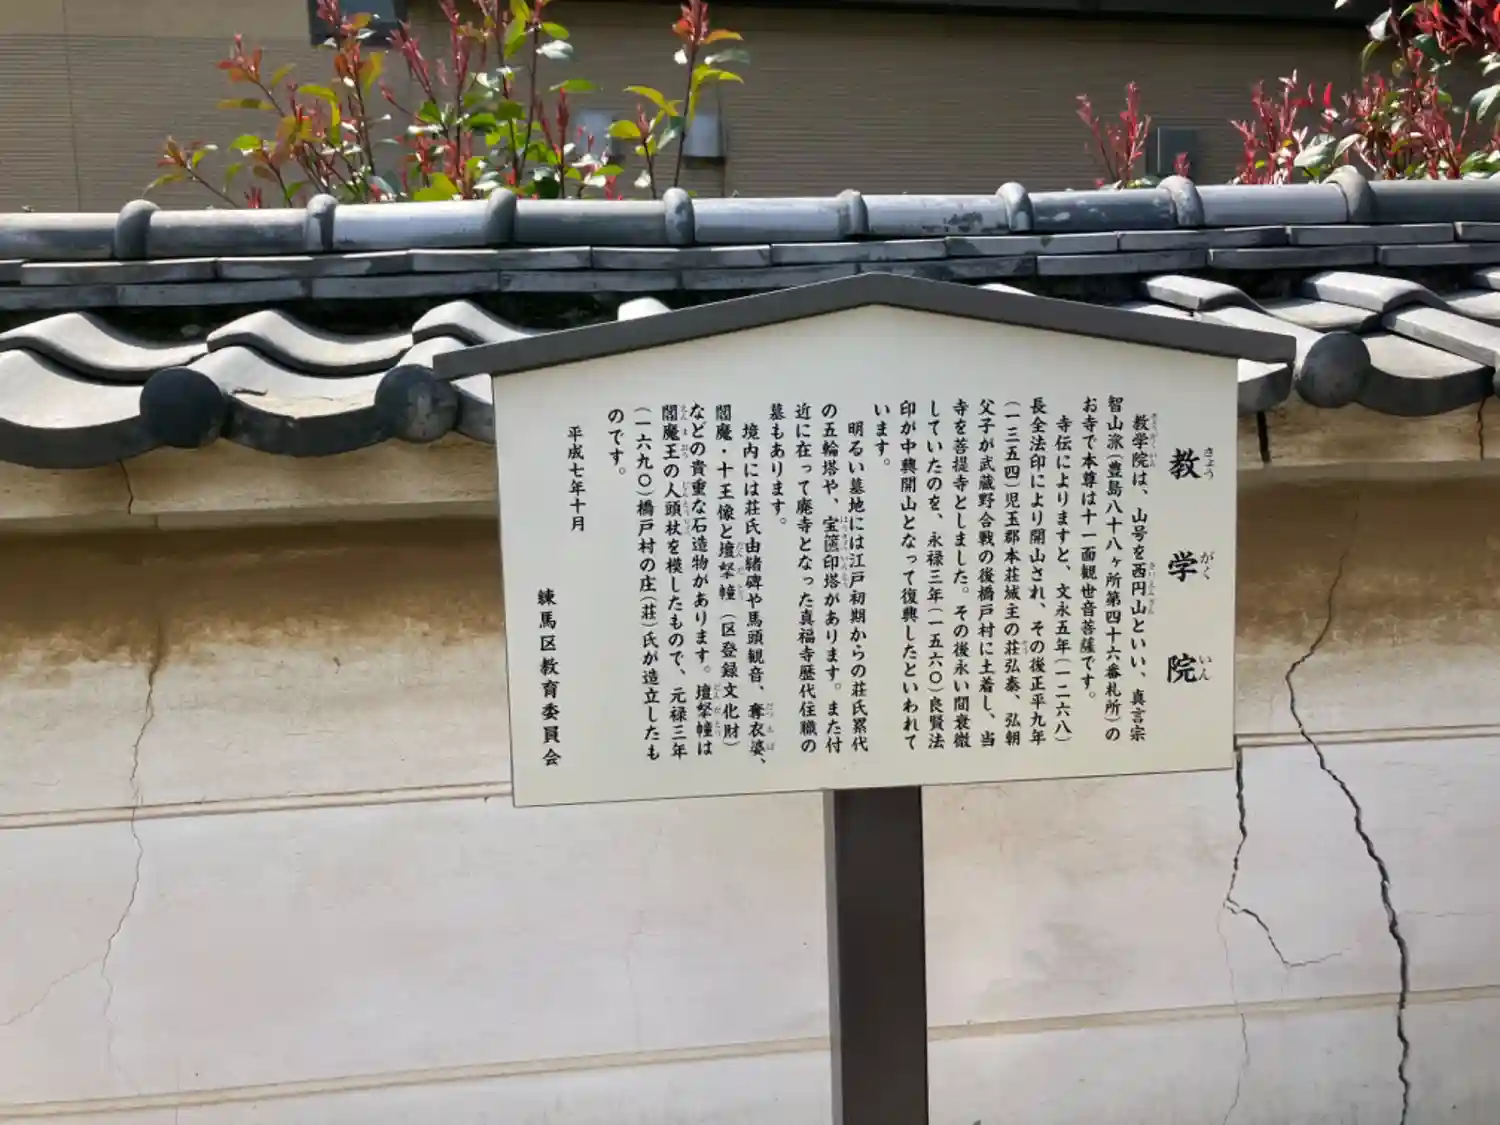 教学院
きょうがくいん
教学院は、山号を西円山といい、真言宗
智山派(豊島八十八ヶ所第四十六番札所)の
お寺で本尊は十一面観世音菩薩です。
寺伝によりますと、文永五年(一二六八)
長全法印により開山され、その後正平九年
(一三五四)児玉郡本荘城主の荘弘泰、弘朝
父子が武蔵野合戦の後橋戸村に土着し、当
寺を菩提寺としました。その後永い間衰微
していたのを、永禄三年(一五六〇)良賢法
印が中興開山となって復興したといわれて
います。
明るい墓地には江戸初期からの荘氏累代
の五輪塔や、宝篋印塔があります。また付
近に在って廃寺となった真福寺歴代住職の
墓もあります。
境内には荘氏由緒碑や馬頭観音、奪衣婆、
閻魔・十王像と壇拏幢(区登録文化財)
などの貴重な石造物があります。壇拏幢は
閻魔王の人頭杖を模したもので、元禄三年
(一六九〇)橋戸村の庄(荘)氏が造立したも
のです。
平成七年十月
練馬区教育委員会